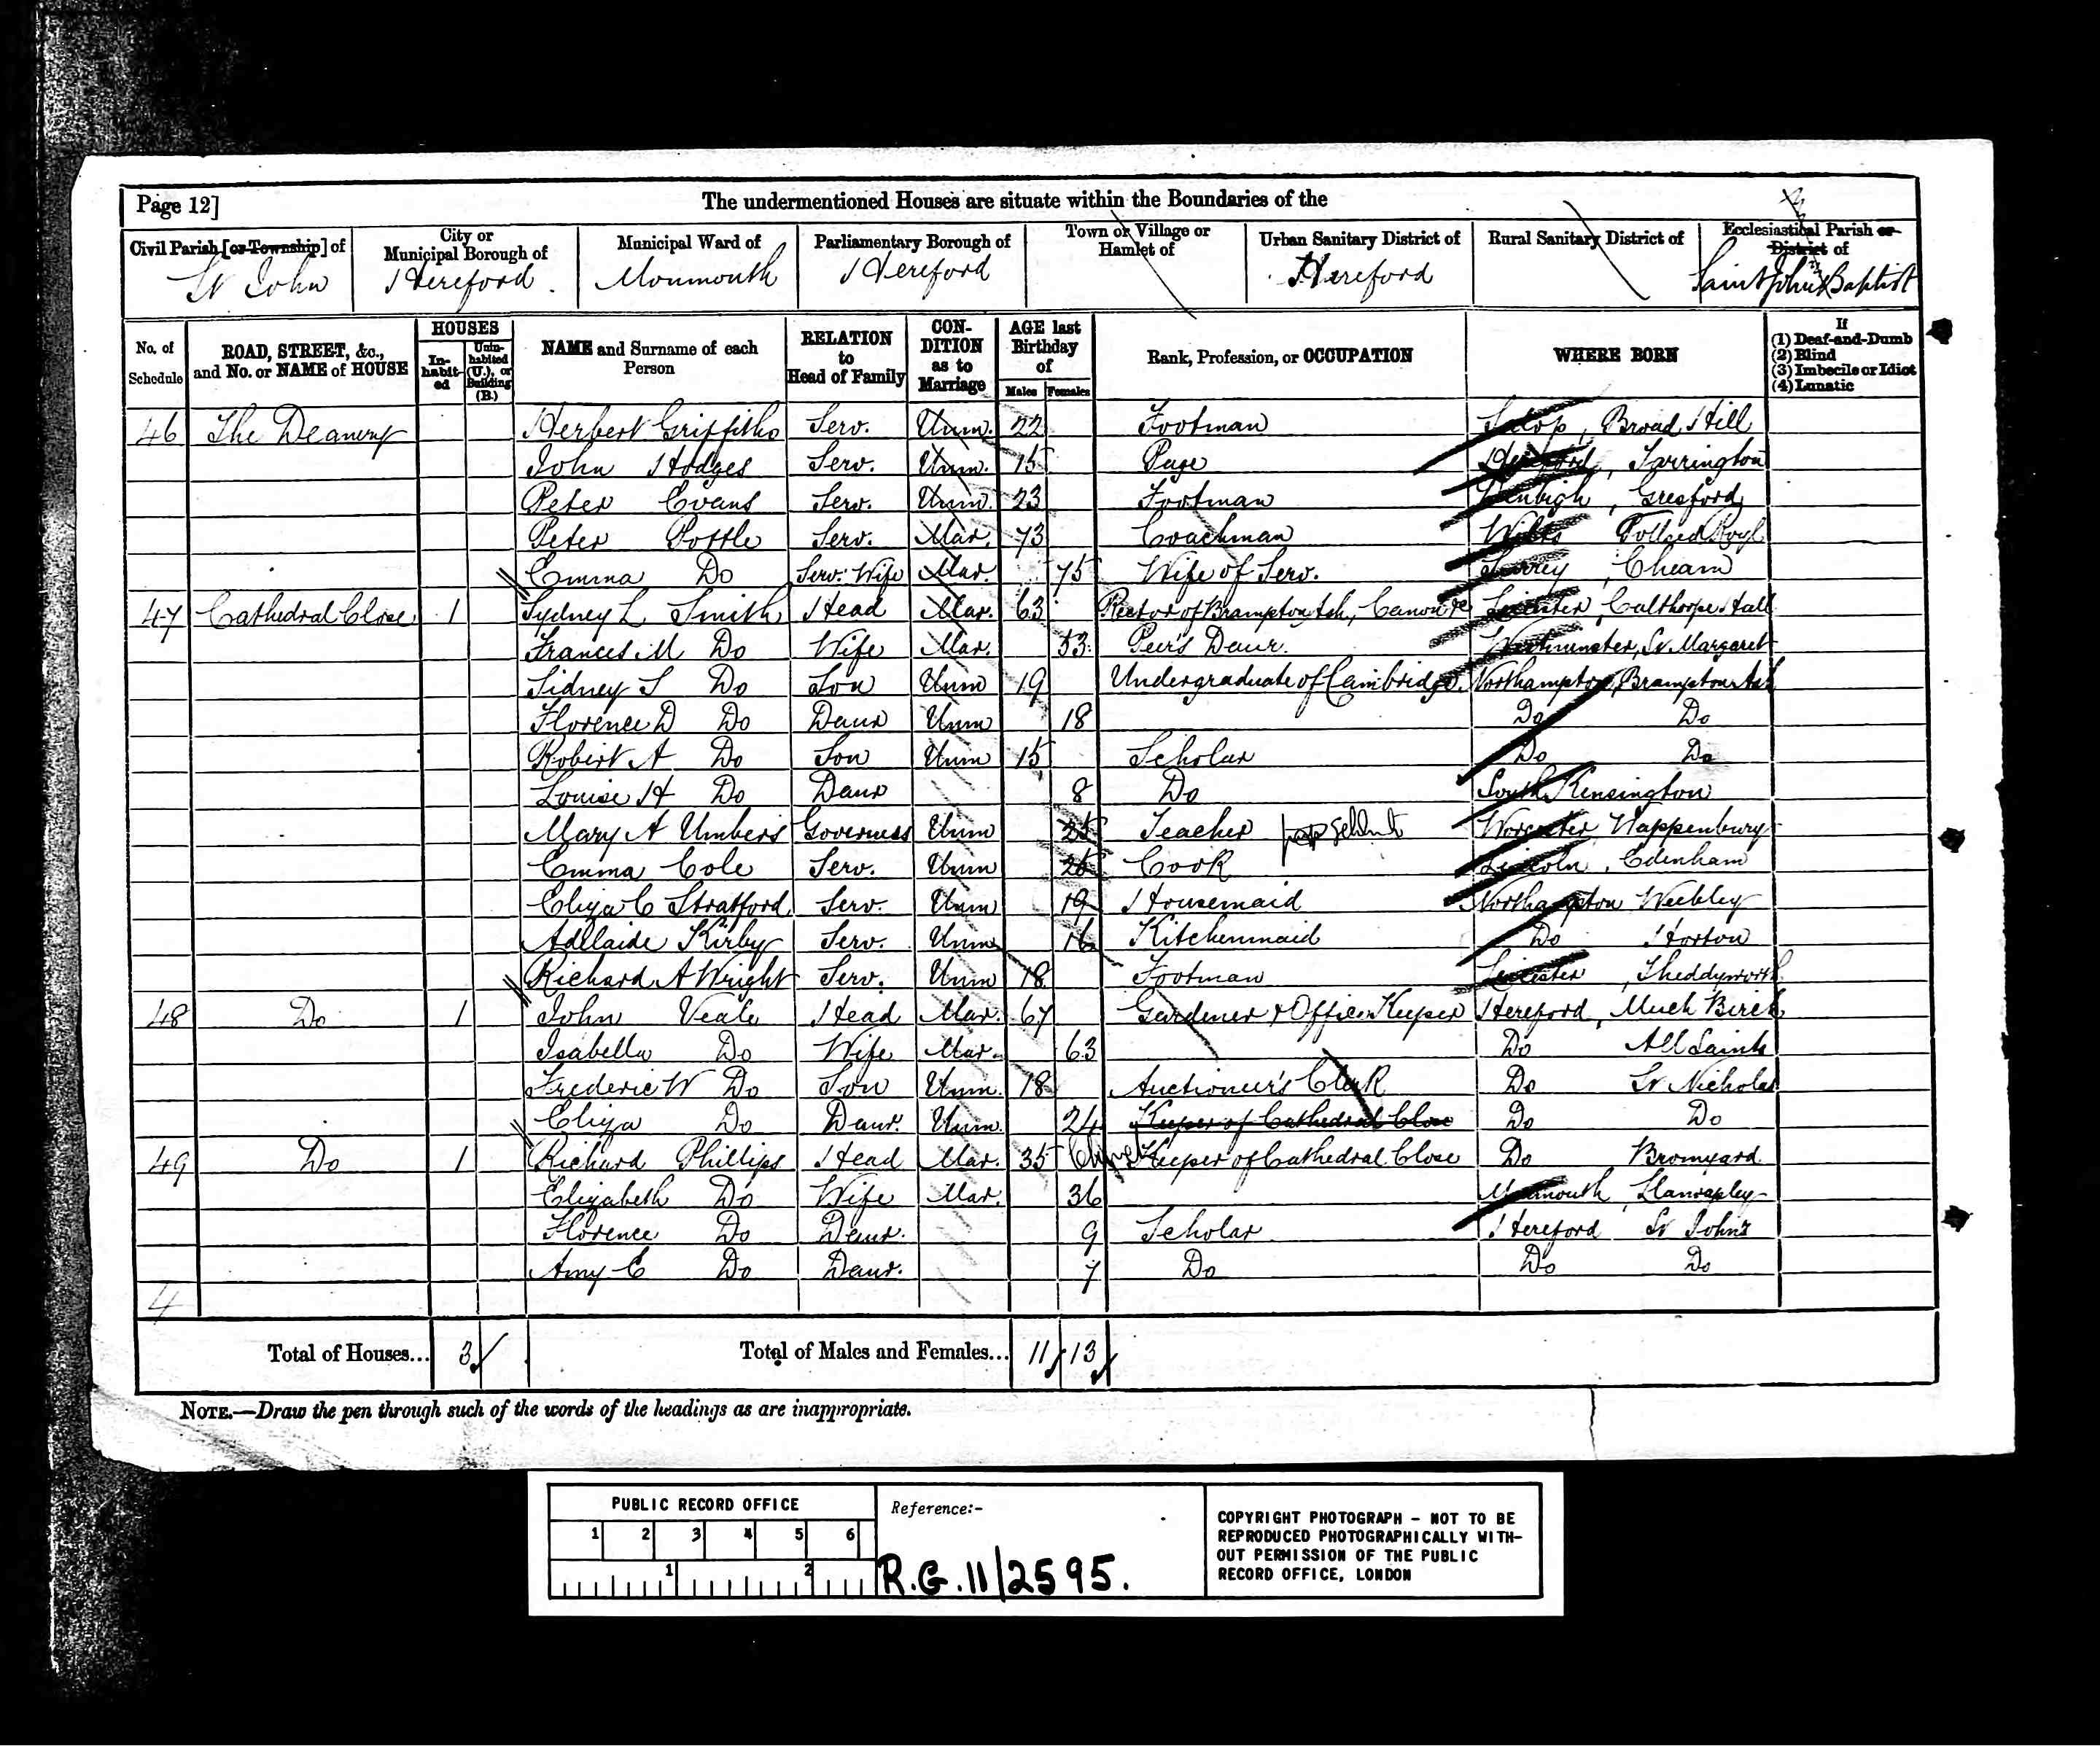 Page 12]
The undermentioned Houses are situate within the Boundaries of the
Civil Parish [or Township] of
St John
City or Municipal Borough of
Hereford
Municipal Ward of
Monmouth
Parliamentary Borough of
Hereford
Town or Village or Hamlet of
Urban Sanitary District of
Hereford
Rural Sanitary District of
Ecclesiastical Parish or District of
Saint John Baptist
No. of Schedule
ROAD, STREET, &c., and No. or NAME of HOUSE
HOUSES
In-habit-ed
Unin-habited (U.), or Building (B.)
NAME and Surname of each Person
RELATION to Head of Family
CON-DITION as to Marriage
AGE last Birthday of
Males Females
Rank, Profession, or OCCUPATION
WHERE BORN
If
(1) Deaf-and-Dumb
(2) Blind
(3) Imbecile or Idiot
(4) Lunatic
46 The Deanery Herbert Griffiths Serv. Unm. 22 Footman Salop, Broad Hill
John Hodges Serv. Unm. 15 Page Hereford, Tarrington
Peter Evans Serv. Unm. 23 Footman Denbigh, Gresford
Peter Pottle Serv. Mar. 73 Coachman Wilts Tollard Royl
Emma Do Serv. Wife Mar. 75 Wife of Serv. Surrey, Cheam
47 Cathedral Close 1 Sydney L Smith Head Mar. 63 Rector of Brampton Ash, Canon &c Leicester, Calthorpe Hall
Frances M Do Wife Mar. 53 Peer's Daur. Westminster, St. Margaret
Sidney S Do Son Unm 19 Undergraduate of Cambridge. Northampton, Brampton Ash
Florence D Do Daur Unm 18 Do Do
Robert A Do Son Unm 15 Scholar Do Do
Louise H Do Daur 8 Do South Kensington
Mary A Umbers Governess Unm 25 Teacher Worcester Wappenbury
Emma Cole Serv. Unm Cook Lincoln, Edenham
Eliza C Stratford Serv. Unm 19 Housemaid Northampton Weekley
Adelaide Kirby Serv. Unm 16 Kitchenmaid Do Horton
Richard A Wright Serv. Unm 18 Footman Leicester, Theddyworth
48 Do 1 John Veale Head Mar. 67 Gardener & Office Keeper Hereford, Much Birch
Isabella Do Wife Mar. 63 Do All Saints
Frederic W Do Son Unm. 18 Auctioneer's Clerk Do St Nicholas
Eliza Do Daur. Unm. 24 Keeper of Cathedral Close Do Do
49 Do 1 Richard Phillips Head Mar. 35 Keeper of Cathedral Close Do Bromyard
Elizabeth Do Wife Mar. 36 Monmouth, Llanvapley
Florence Do Daur. 9 Scholar Hereford St John's
Amy E Do Daur. 7 Do Do Do
4
Total of Houses... 3
Total of Males and Females... 11 13
NOTE.—Draw the pen through such of the words of the headings as are inappropriate.
PUBLIC RECORD OFFICE
1 2 3 4 5 6
1 2
Reference:-
R.G. 11/2595.
COPYRIGHT PHOTOGRAPH - NOT TO BE
REPRODUCED PHOTOGRAPHICALLY WITH-
OUT PERMISSION OF THE PUBLIC
RECORD OFFICE, LONDON